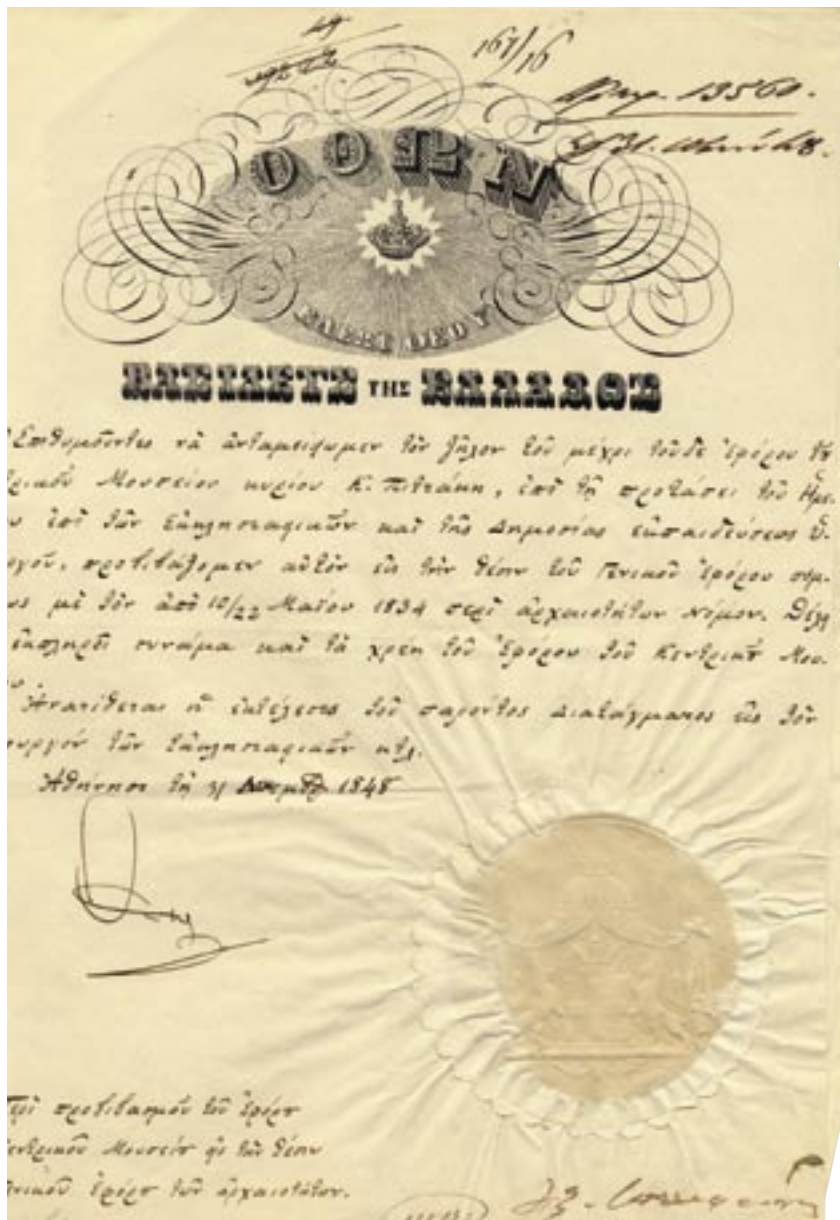 167/16
13560.
ΟΘΩΝ
ΕΛΕΩΙ ΘΕΟΥ
ΒΑΣΙΛΕΥΣ ΤΗΣ ΕΛΛΑΔΟΣ
Ἐπιθυμοῦντες νὰ ἀνταμείψωμεν τὸν ζῆλον τοῦ μέχρι τοῦδε Ἐφόρου τοῦ
τρικοῦ Μουσείου κυρίου Κ. Πιττάκη, ἐπὶ τῇ προτάσει τοῦ Ἡμε-
ἐπὶ τῶν Ἐκκλησιαστικῶν καὶ τῆς Δημοσίας ἐκπαιδεύσεως Ὑ-
ργοῦ, προβιβάζομεν αὐτὸν εἰς τὴν θέσιν τοῦ Γενικοῦ Ἐφόρου συμ-
ως μὲ τὸν ἀπὸ 10/22 Μαΐου 1834 περὶ ἀρχαιοτήτων Νόμον. Θέλει
ἐκπληροῖ συνάμα καὶ τὰ χρέη τοῦ Ἐφόρου τοῦ Κεντρικοῦ Μου-
Ἀνατίθεται ἡ ἐκτέλεσις τοῦ παρόντος Διατάγματος εἰς τὸν
ουργὸν τῶν Ἐκκλησιαστικῶν κτλ.
Ἀθήνησι τῇ 31 1848
Ὄθων
ερὶ προβιβασμοῦ τοῦ ἐφόρου
εντρικοῦ Μουσείου εἰς τὴν θέσιν
ενικοῦ ἐφόρου τῶν ἀρχαιοτήτων.